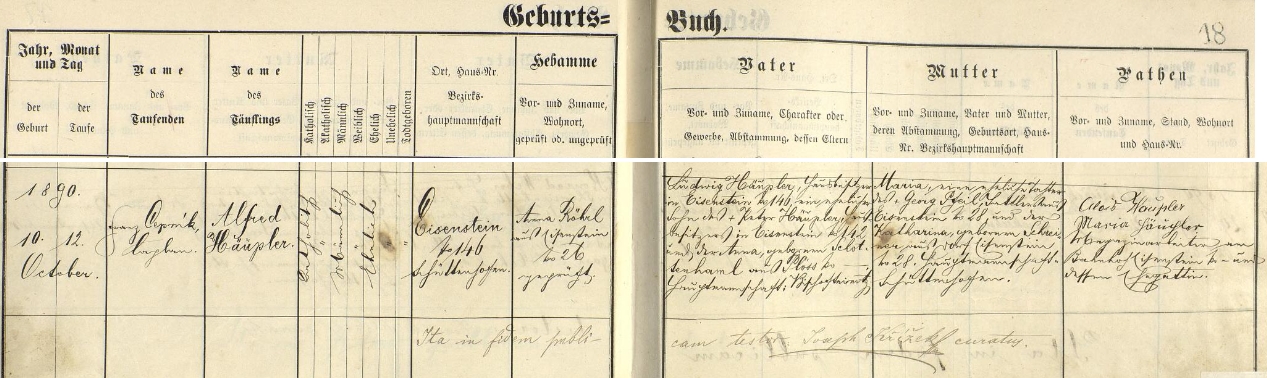 Geburts=
Buch.
18
Jahr, Monat
und Tag
der
Geburt
der
Taufe
Name
des
Taufenden
Name
des
Täuflings
Katholisch
Akatholisch
Männlich
Weiblich
Ehelich
Unehelich
Todtgeboren
Ort, Haus-Nr.
Bezirks-
hauptmannschaft
Hebamme
Vor- und Zuname,
Wohnort,
geprüft od. ungeprüft
Vater
Vor- und Zuname, Charakter oder
Gewerbe, Abstammung, dessen Eltern
Mutter
Vor- und Zuname, Vater und Mutter,
deren Abstammung, Geburtsort, Haus-
Nr. Bezirkshauptmannschaft
Pathen
Vor- und Zuname, Stand, Wohnort
und Haus-Nr.
1890.
10. 12.
October.
Franz
Kaplan.
Alfred
Häupler.
Katholisch
Männlich
Ehelich
"
Eisenstein
No 146
Schüttenhofen.
Anna
aus Eisenstein
No 26
geprüft.
Ludwig Häupler, Hausbesitzer
in Eisenstein No 146, ein ehelicher
Sohn des + Peter Häupler,
besitzers in Eisenstein No 142
und der Anna, geborenen
aus
Hauptmannschaft: Bischofteinitz
Maria, eine eheliche Tochter
des Georg
Eisenstein No 28, und der
Katharina, geborenen
aus Dorf Eisenstein
No 28. Hauptmannschaft
Schüttenhofen.
Alois Häupler
Maria Häupler
am
Bahnhof Eisenstein No – und
dessen Ehegattin.
Ita in fidem publi-
cam testor. Joseph curatus.